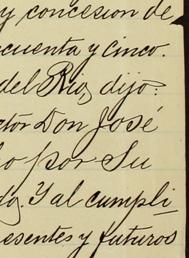 y concesion de
cuenta y cinco.
del Rio, dijo:
ctor Don José
lo por Su
do. Y al cumpli-
esentes y futuros